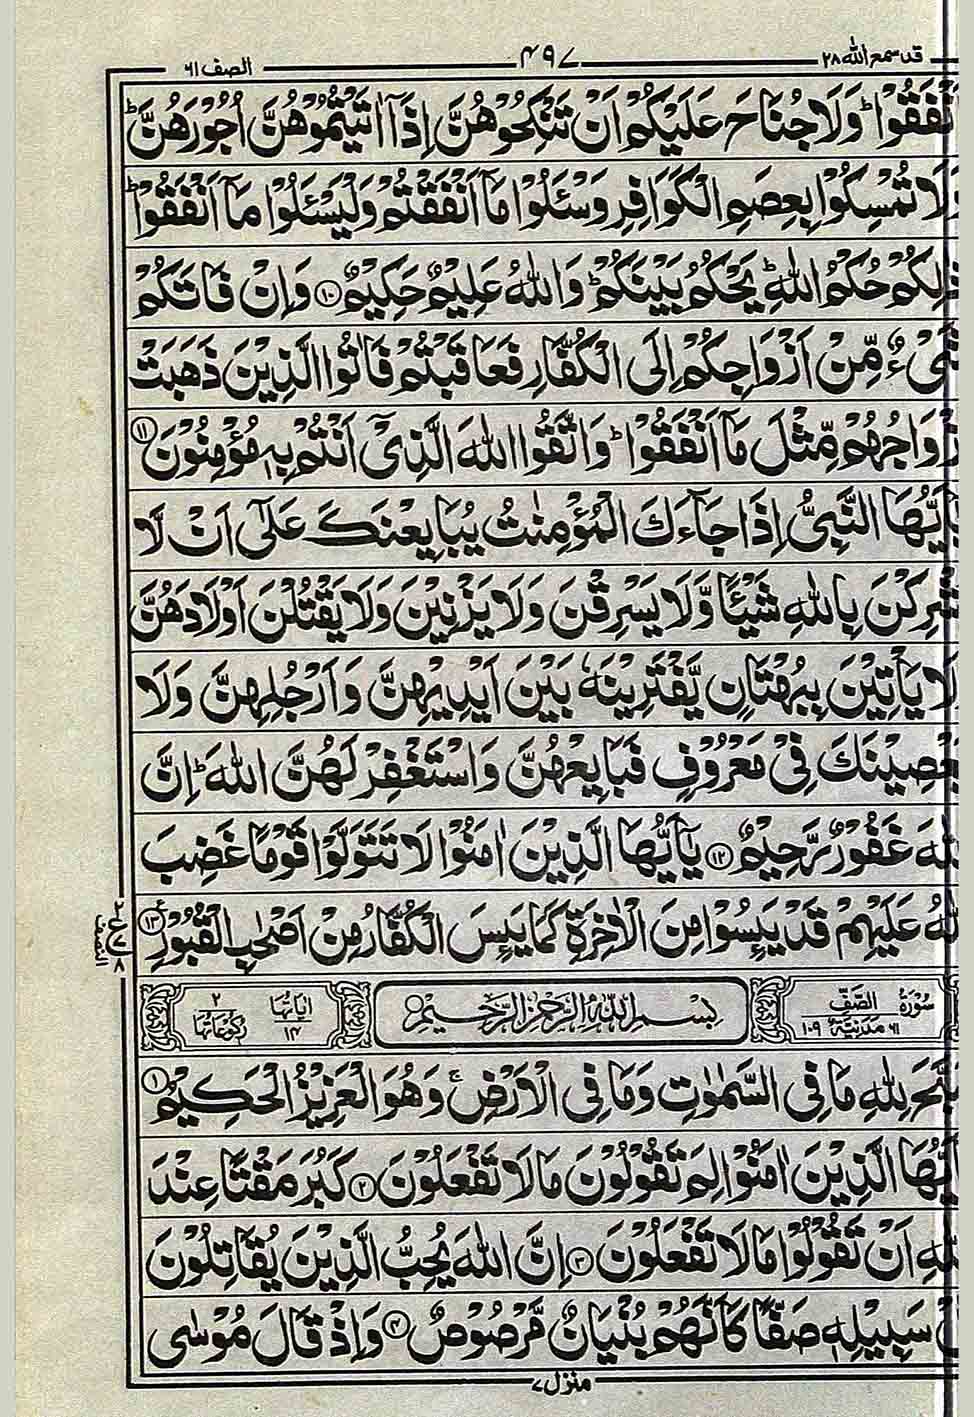 قد سمع الله ٢٨ ٤٩٧ الصف ٦١
اَنْفَقُوْا ؕ وَلَا جُنَاحَ عَلَيْكُمْ اَنْ تَنْكِحُوْهُنَّ اِذَاۤ اٰتَيْتُمُوْهُنَّ اُجُوْرَهُنَّ ؕ
وَلَا تُمْسِكُوْا بِعِصَمِ الْكَوَافِرِ وَسْـَٔلُوْا مَاۤ اَنْفَقْتُمْ وَلْيَسْـَٔلُوْا مَاۤ اَنْفَقُوْا ؕ
ذٰلِكُمْ حُكْمُ اللّٰهِ ؕ يَحْكُمُ بَيْنَكُمْ ؕ وَاللّٰهُ عَلِيْمٌ حَكِيْمٌ ۝١٠ وَاِنْ فَاتَكُمْ
شَيْءٌ مِّنْ اَزْوَاجِكُمْ اِلَى الْكُفَّارِ فَعَاقَبْتُمْ فَاٰتُوا الَّذِيْنَ ذَهَبَتْ
اَزْوَاجُهُمْ مِّثْلَ مَاۤ اَنْفَقُوْا ؕ وَاتَّقُوا اللّٰهَ الَّذِيْۤ اَنْتُمْ بِهٖ مُؤْمِنُوْنَ ۝١١
يٰۤاَيُّهَا النَّبِيُّ اِذَا جَآءَكَ الْمُؤْمِنٰتُ يُبَايِعْنَكَ عَلٰۤى اَنْ لَّا
يُشْرِكْنَ بِاللّٰهِ شَيْـًٔا وَّلَا يَسْرِقْنَ وَلَا يَزْنِيْنَ وَلَا يَقْتُلْنَ اَوْلَادَهُنَّ
وَلَا يَاْتِيْنَ بِبُهْتَانٍ يَّفْتَرِيْنَهٗ بَيْنَ اَيْدِيْهِنَّ وَاَرْجُلِهِنَّ وَلَا
يَعْصِيْنَكَ فِيْ مَعْرُوْفٍ فَبَايِعْهُنَّ وَاسْتَغْفِرْ لَهُنَّ اللّٰهَ ؕ اِنَّ
اللّٰهَ غَفُوْرٌ رَّحِيْمٌ ۝١٢ يٰۤاَيُّهَا الَّذِيْنَ اٰمَنُوْا لَا تَتَوَلَّوْا قَوْمًا غَضِبَ
اللّٰهُ عَلَيْهِمْ قَدْ يَىِٕسُوْا مِنَ الْاٰخِرَةِ كَمَا يَىِٕسَ الْكُفَّارُ مِنْ اَصْحٰبِ الْقُبُوْرِ ۝١٣
ع ٢ ٧ ٨
سُوْرَةُ الصَّفِّ ٦١ مَدَنِيَّةٌ ١٠٩ بِسْمِ اللّٰهِ الرَّحْمٰنِ الرَّحِيْمِ اٰيَاتُهَا ١٤ رُكُوْعَاتُهَا ٢
سَبَّحَ لِلّٰهِ مَا فِي السَّمٰوٰتِ وَمَا فِي الْاَرْضِ ۚ وَهُوَ الْعَزِيْزُ الْحَكِيْمُ ۝١
يٰۤاَيُّهَا الَّذِيْنَ اٰمَنُوْا لِمَ تَقُوْلُوْنَ مَا لَا تَفْعَلُوْنَ ۝٢ كَبُرَ مَقْتًا عِنْدَ
اللّٰهِ اَنْ تَقُوْلُوْا مَا لَا تَفْعَلُوْنَ ۝٣ اِنَّ اللّٰهَ يُحِبُّ الَّذِيْنَ يُقَاتِلُوْنَ
سَبِيْلِهٖ صَفًّا كَاَنَّهُمْ بُنْيَانٌ مَّرْصُوْصٌ ۝٤ وَاِذْ قَالَ مُوْسٰى
منزل ٧